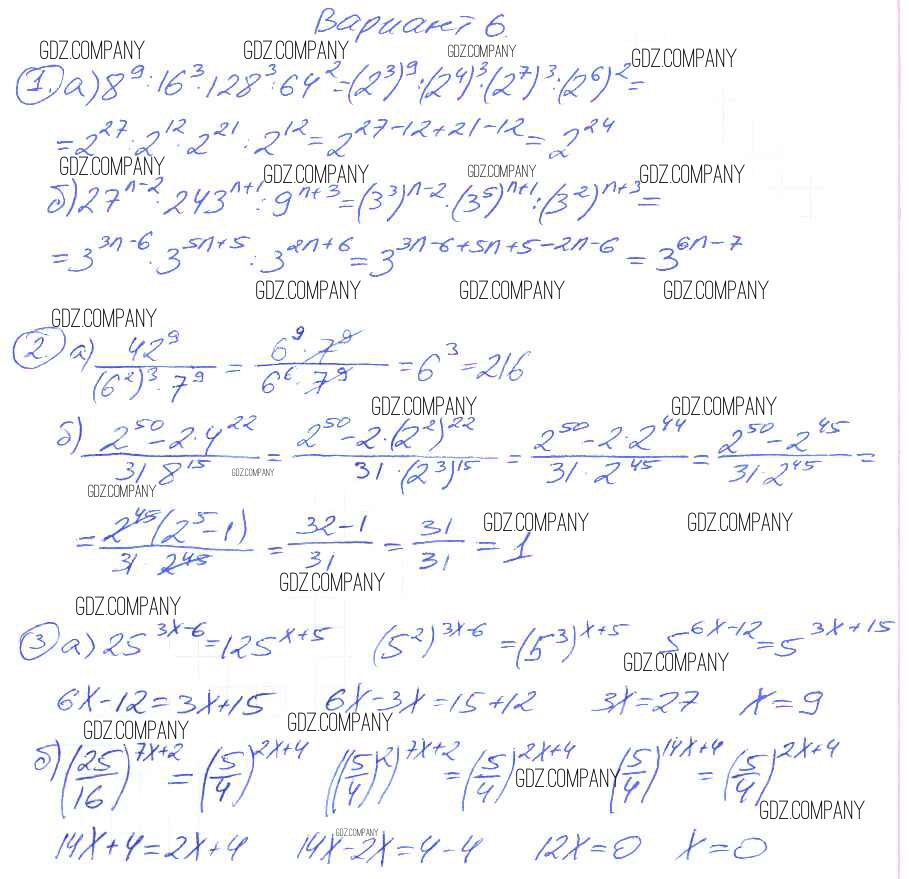 Вариант 6.
GDZ.COMPANY GDZ.COMPANY GDZ.COMPANY GDZ.COMPANY
1. а) 8^9 : 16^3 · 128^3 : 64^2 = (2^3)^9 : (2^4)^3 · (2^7)^3 : (2^6)^2 =
= 2^27 : 2^12 · 2^21 : 2^12 = 2^(27-12+21-12) = 2^24
GDZ.COMPANY GDZ.COMPANY GDZ.COMPANY GDZ.COMPANY
б) 27^(n-2) · 243^(n+1) : 9^(n+3) = (3^3)^(n-2) · (3^5)^(n+1) : (3^2)^(n+3) =
= 3^(3n-6) · 3^(5n+5) : 3^(2n+6) = 3^(3n-6+5n+5-2n-6) = 3^(6n-7)
GDZ.COMPANY GDZ.COMPANY GDZ.COMPANY GDZ.COMPANY
2. а) 42^9 / ((6^2)^3 · 7^9) = (6^9 · 7^9) / (6^6 · 7^9) = 6^3 = 216
GDZ.COMPANY GDZ.COMPANY
б) (2^50 - 2 · 4^22) / (31 · 8^15) = (2^50 - 2 · (2^2)^22) / (31 · (2^3)^15) = (2^50 - 2 · 2^44) / (31 · 2^45) = (2^50 - 2^45) / (31 · 2^45) =
GDZ.COMPANY GDZ.COMPANY
= 2^45 (2^5 - 1) / (31 · 2^45) = (32 - 1) / 31 = 31 / 31 = 1
GDZ.COMPANY GDZ.COMPANY
GDZ.COMPANY
GDZ.COMPANY
3 а) 25^(3x-6) = 125^(x+5) (5^2)^(3x-6) = (5^3)^(x+5) 5^(6x-12) = 5^(3x+15)
GDZ.COMPANY
6x-12=3x+15 6x-3x=15+12 3x=27 x=9
GDZ.COMPANY GDZ.COMPANY
б) (25/16)^(7x+2) = (5/4)^(2x+4) ((5/4)^2)^(7x+2) = (5/4)^(2x+4) (5/4)^(14x+4) = (5/4)^(2x+4)
GDZ.COMPANY GDZ.COMPANY
GDZ.COMPANY
14x+4=2x+4 14x-2x=4-4 12x=0 x=0